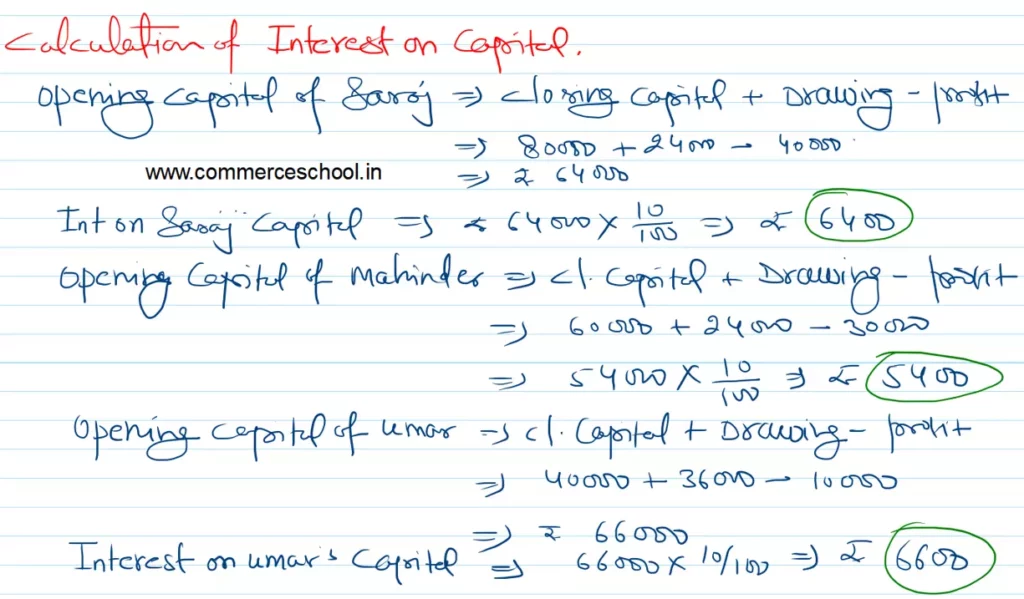 Calculation of Interest on Capital.
Opening Capital of Saroj ⇒ Closing Capital + Drawing - profit
⇒ 80000 + 24000 - 40000
www.commerceschool.in
⇒ ₹ 64000
Int on Saroj Capital ⇒ ₹ 64000 × 10/100 ⇒ ₹ 6400
Opening Capital of Mahinder ⇒ cl. Capital + Drawing - profit
⇒ 60000 + 24000 - 30000
⇒ 54000 × 10/100 ⇒ ₹ 5400
Opening Capital of Umar ⇒ cl. Capital + Drawing - profit
⇒ 40000 + 36000 - 10000
⇒ ₹ 66000
Interest on Umar's Capital ⇒ 66000 × 10/100 ⇒ ₹ 6600